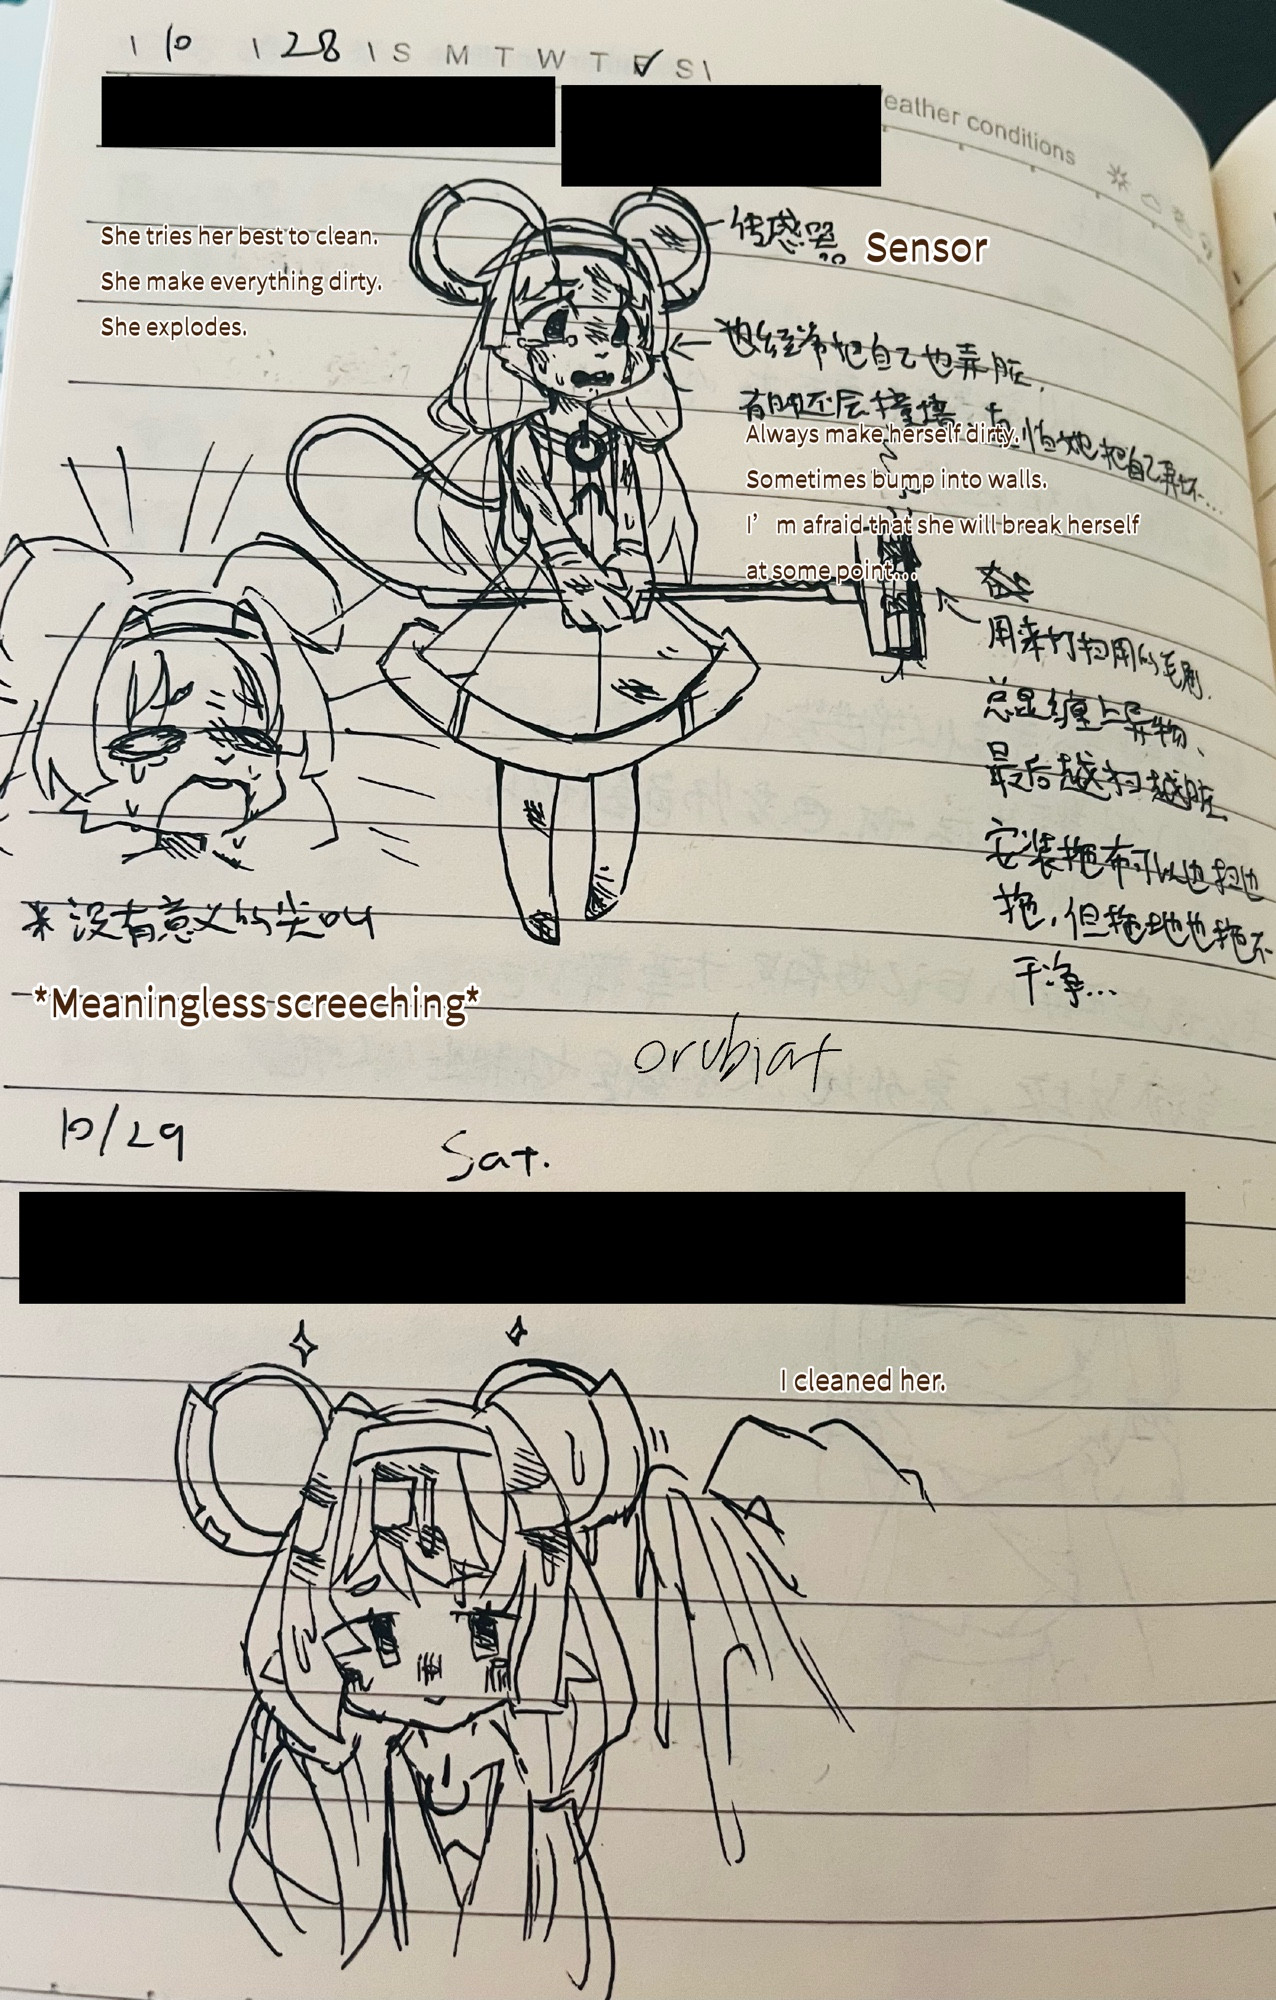 10 28 S M T W T F S
Weather conditions
She tries her best to clean.
She make everything dirty.
She explodes.
传感器
Sensor
也经常把自己也弄脏.
有时还会撞墙
怕她把自己弄坏...
Always make herself dirty.
Sometimes bump into walls.
I'm afraid that she will break herself
at some point...
用来打扫用的毛刷.
总是缠上异物、
最后越扫越脏
安装拖布可以边扫边
拖,但拖地也拖不
干净...
※没有意义的尖叫
*Meaningless screeching*
orubiat
10/29 Sat.
I cleaned her.